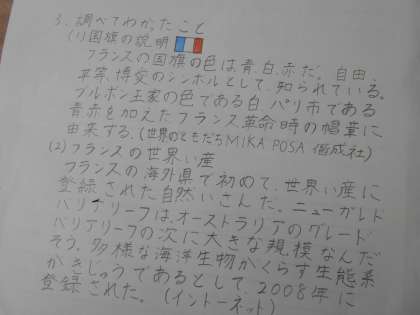 3. 調べてわかったこと
(1)国旗の説明
フランスの国旗の色は、青、白、赤だ。自由、
平等、博愛のシンボルとして、知られている。
ブルボン王家の色である白 パリ市である
青赤を加えたフランス革命時の帽章に
由来する。(世界のともだちMIKA POSA 偕成社)
(2)フランスの世界い産
フランスの海外県で初めて、世界い産に
登録された自然いさんだ。ニューカレド
バリアリーフは、オーストラリアのグレート
バリアリーフの次に大きな規模なんだ
そう。多様な海洋生物がくらす生態系
がきしょうであるとして、2008年に
登録された。(インターネット)